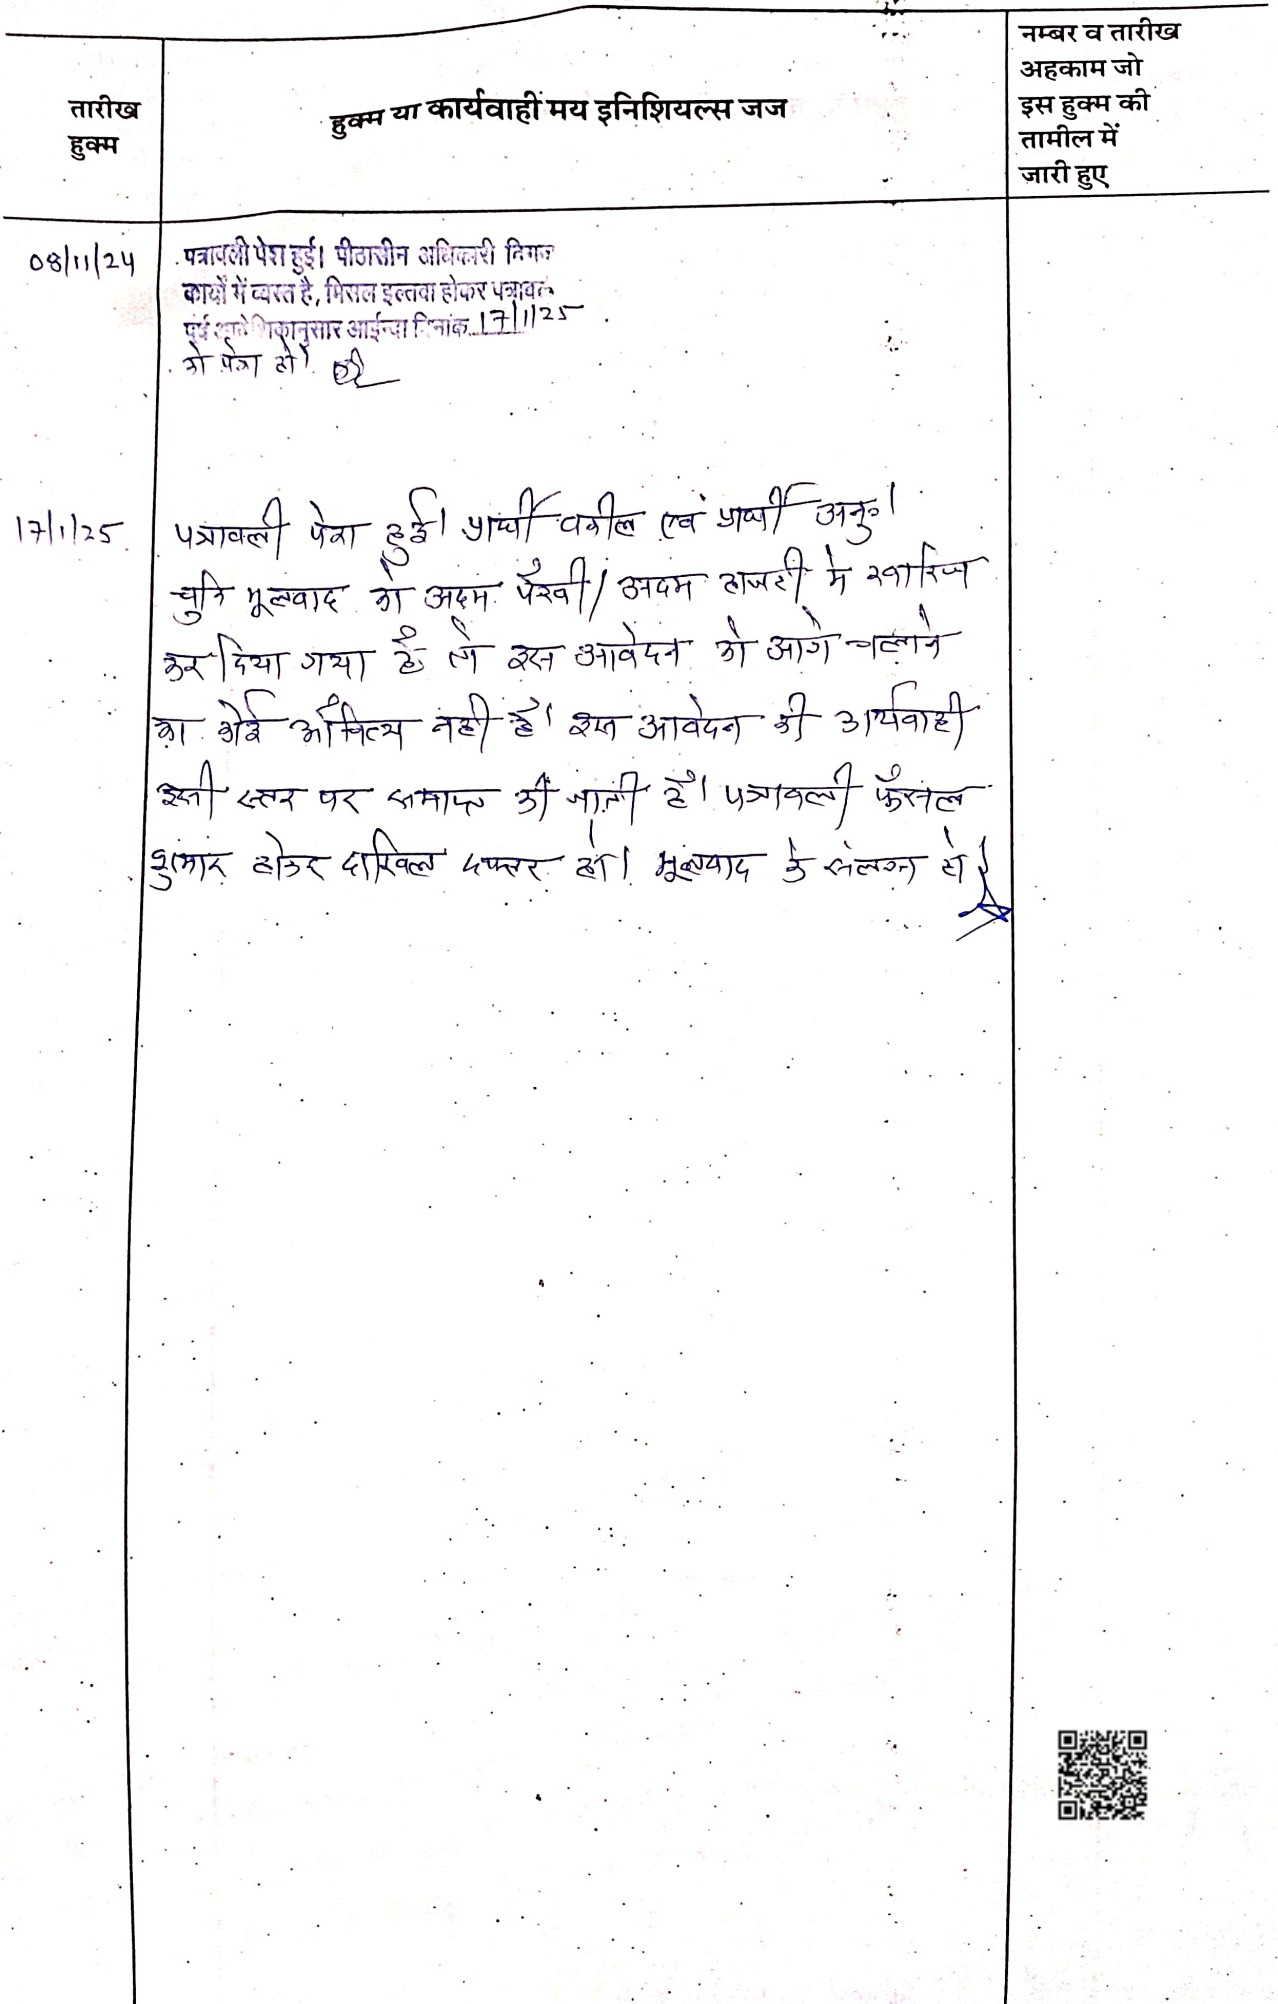 तारीख
हुक्म
हुक्म या कार्यवाही मय इनिशियल्स जज
नम्बर व तारीख
अहकाम जो
इस हुक्म की
तामील में
जारी हुए
08/11/24
पत्रावली पेश हुई। पीठासीन अधिकारी
कार्यों में व्यस्त है, मिसल इल्तवा होकर
पूर्व आदेशिकानुसार आईन्दा दिनांक 17/1/25
को पेश हो।
17/1/25
पत्रावली पेश हुई। प्रार्थी वकील एवं प्रार्थी अनु.।
चुकि मूलवाद को अदम पैरवी/अदम हाजरी मे खारिज
कर दिया गया है तो इस आवेदन को आगे चलाने
का कोई औचित्य नही है। इस आवेदन की कार्यवाही
इसी स्तर पर समाप्त की जाती है। पत्रावली फैसल
शुमार होकर दाखिल दफ्तर हो। मूलवाद के संलग्न हो।